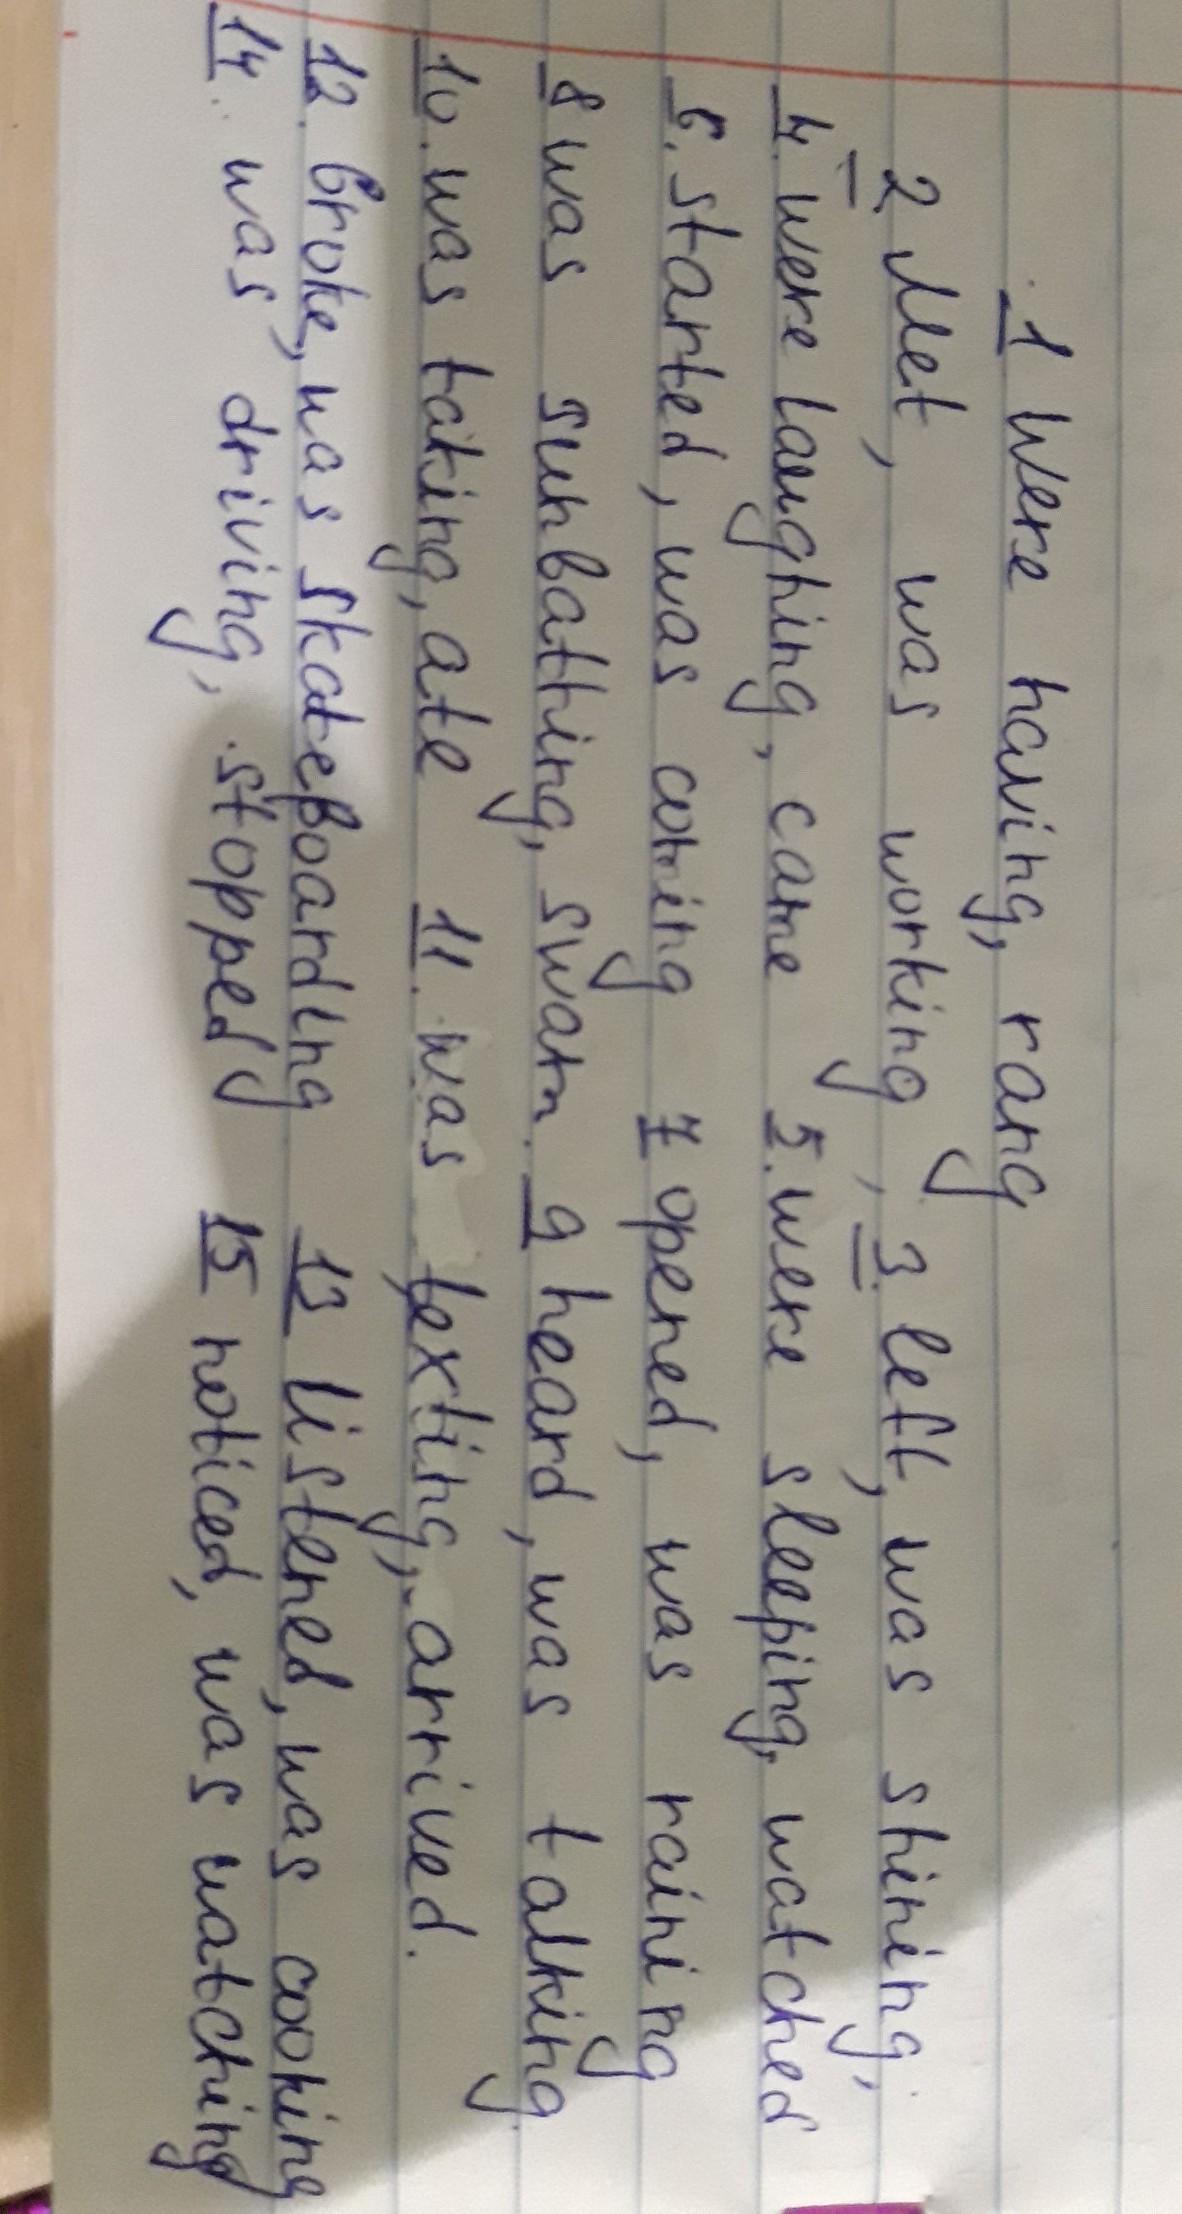 1 Were having, rang
2 Met, was working, 3. left, was shining,
4. were laughing, came 5. were sleeping, watched
6. started, was coming 7 opened, was raining
8 was sunbathing, swam. 9 heard, was talking
10. was taking, ate 11. was texting, arrived.
12. broke, was skateboarding 13 listened, was cooking
14. was driving, stopped 15 noticed, was watching